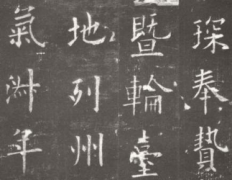 琛奉贄
暨輪臺
地列州
氣淑年